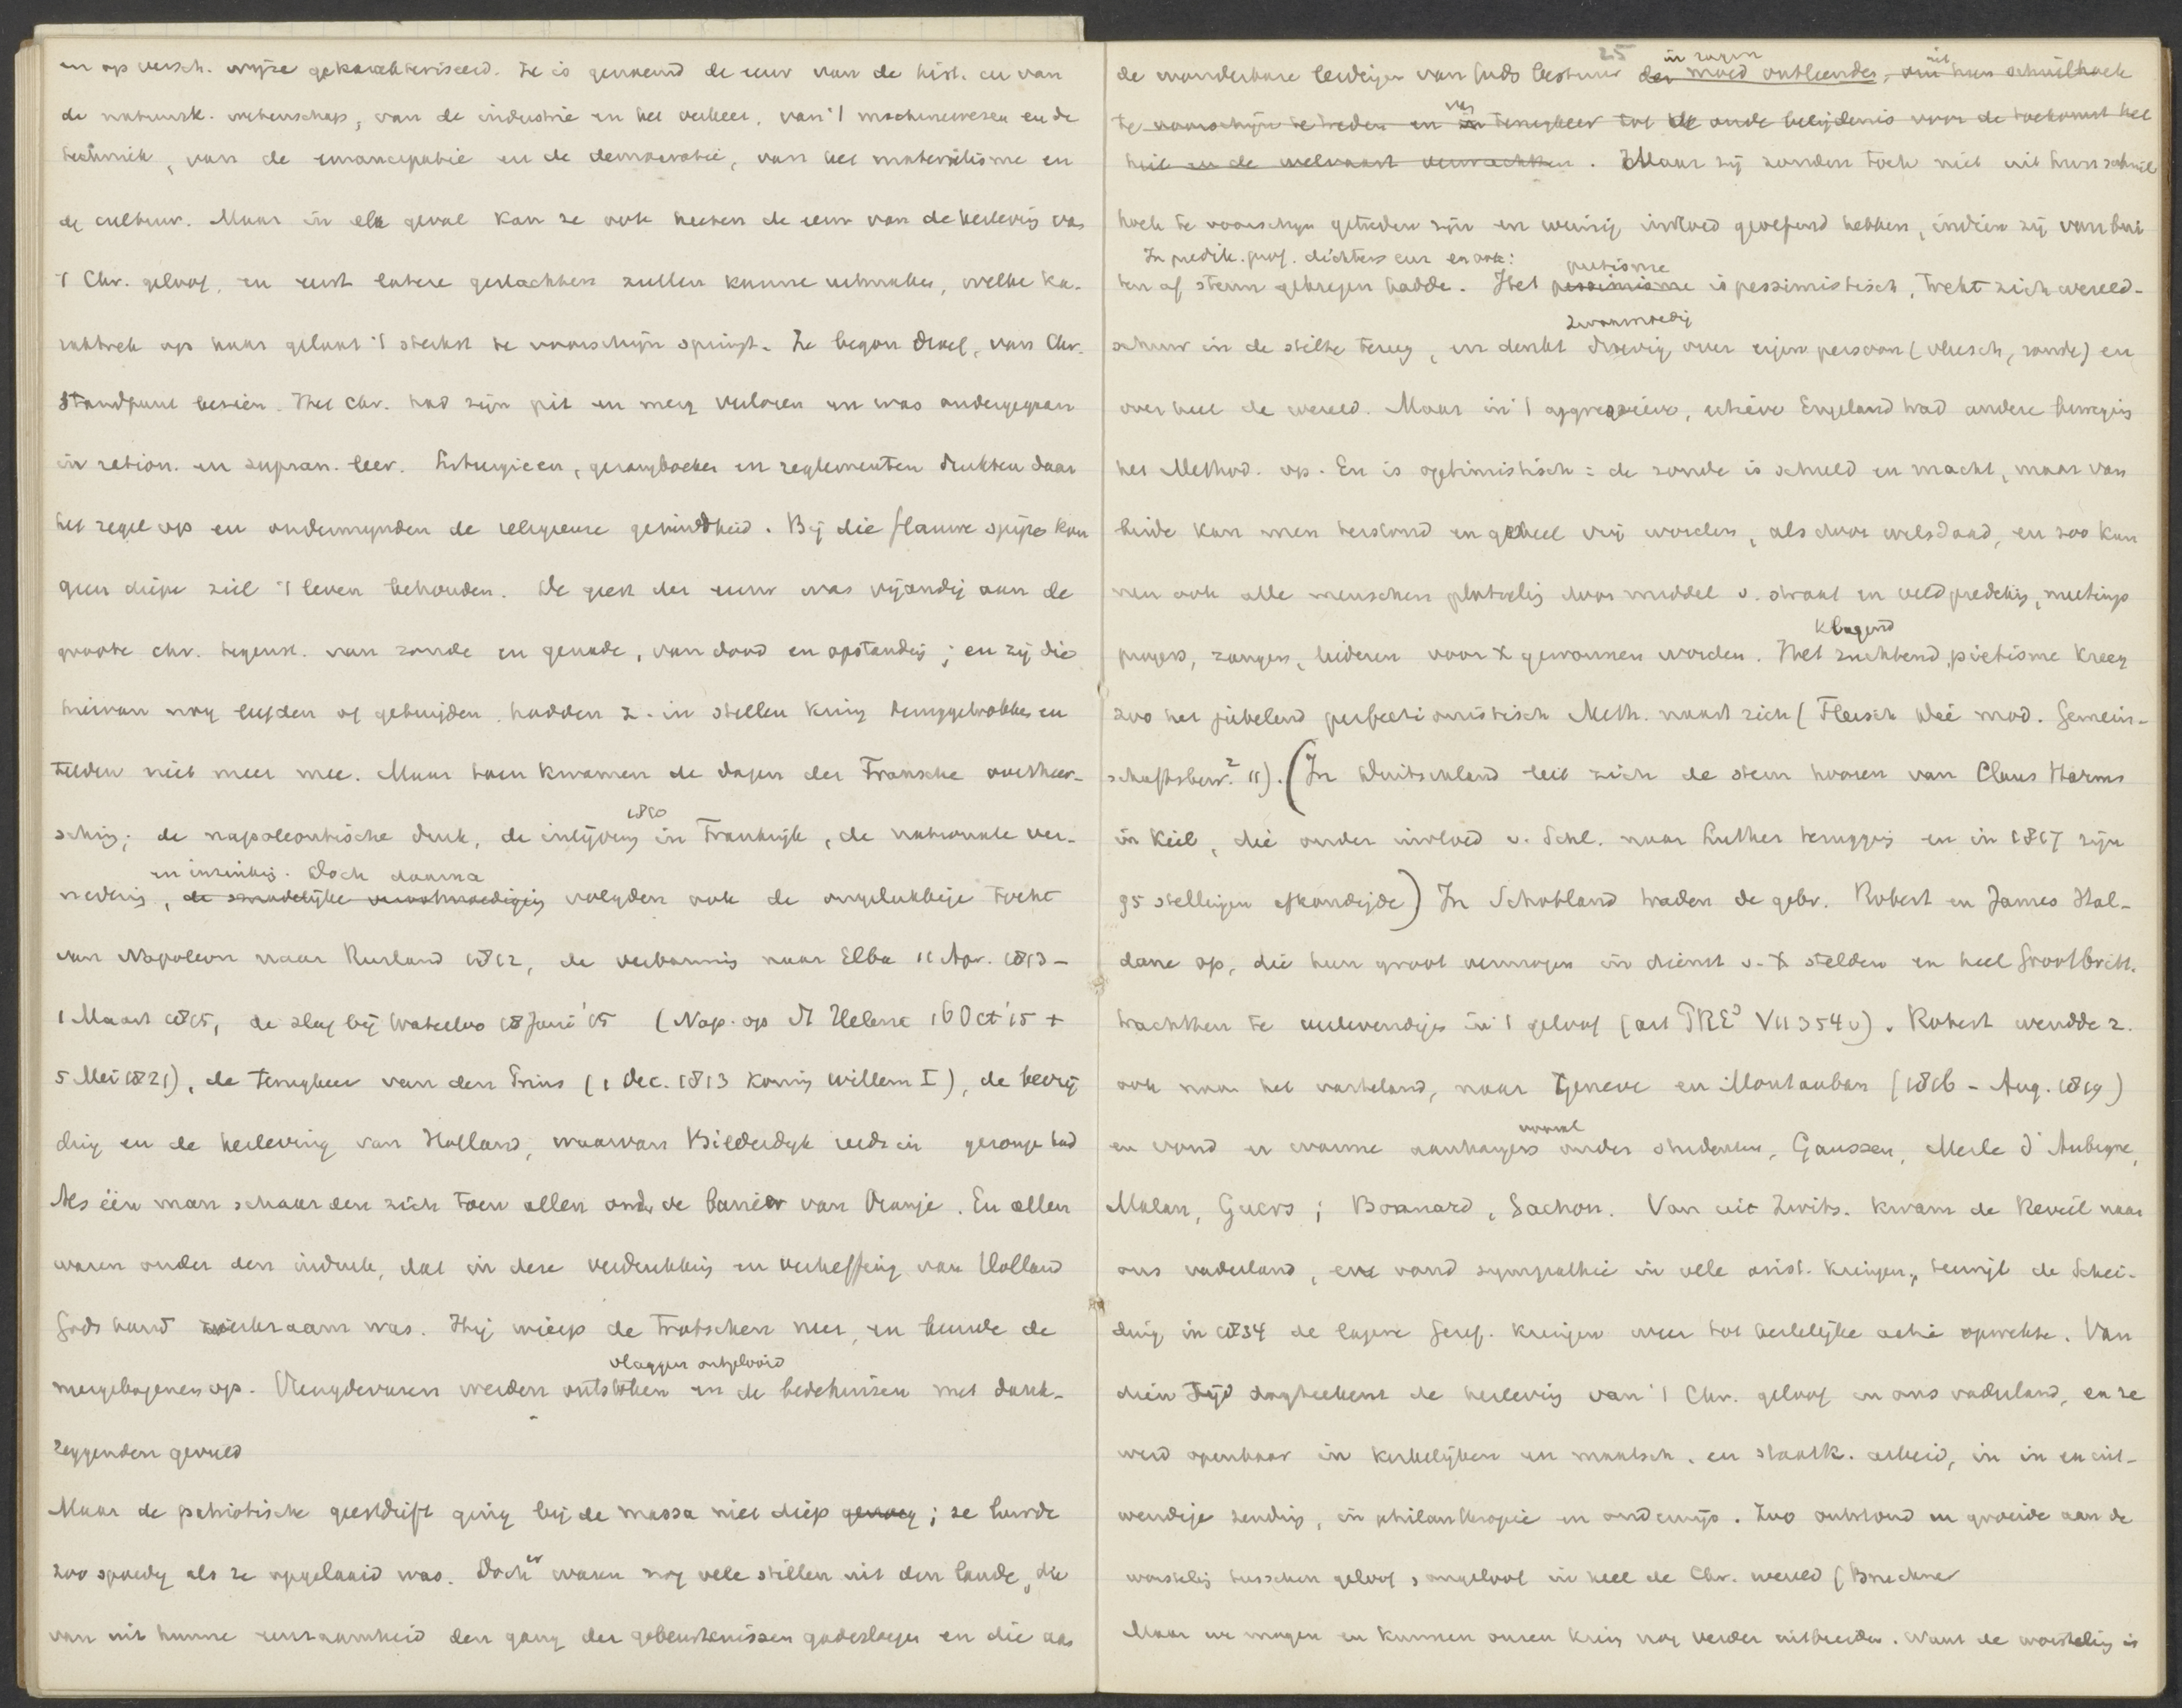 en op versch. wijze gekarakteriseerd. Ze is genoemd de eeuw van de hist. en van
de natuurk. wetenschap, van de industrie en het verkeer, van 't machinewezen en de
techniek, van de emancipatie en de democratie, van het materialisme en
de cultuur. Maar in elk geval kan ze ook heeten de eeuw van de herleving van
't Chr. geloof, en eerst latere geslachten zullen kunnen uitmaken, welke ka-
raktertrek op haar gelaat 't sterkst te voorschijn springt. Ze begon droef, van Chr.
standpunt bezien. Het Chr. had zijn pit en merg verloren en was ondergegaan
in ration. en supran. leer. Liturgieen, gezangboeken en reglementen drukten daar
het zegel op en ondermijnden de religieuse gezindheid. Bij die flauwe spijze kon
geen diepe ziel 't leven behouden. De geest der eeuw was vijandig aan de
groote chr. tegenst. van zonde en genade, van dood en opstanding; en zij die
hiervan nog leefden of getuigden, hadden z. in stillen kring teruggetrokken en
telden niet meer mee. Maar toen kwamen de dagen der Fransche overheer-
sching; de napoleontische druk, de inlijving in Frankrijk, de nationale ver-
1810
nedering, de smadelijke verootmoediging volgden ook de ongelukkige tocht
en inzinking. Doch daarna
van Napoleon naar Rusland 1812, de verbannis naar Elba 11 Apr. 1813 -
1 Maart 1815, de slag bij Waterloo 18 Juni '15 (Nap. op St Helena 16 Oct '15 +
5 Mei 1821), de terugkeer van den Prins (1 Dec. 1813 Koning Willem I), de bevrij
ding en de herleving van Holland, waarvan Bilderdijk reeds in gezongen had
Als één man schaarden zich toen allen onder de banier van Oranje. En allen
waren onder den indruk, dat in deze verdrukking en verheffing van Holland
Gods hand werkzaam was. Hij wierp de trotschen neer, en beurde de
neergebogenen op. Vreugdevuren werden ontstoken en de bedehuizen met dank-
vlaggen ontplooid
zeggenden gevuld
Maar de patriotische geestdrift ging bij de massa niet diep genoeg; ze luwde
zoo spoedig als ze opgelaaid was. Doch er waren nog vele stillen uit den lande, die
van uit hunne eenzaamheid den gang der gebeurtenissen gadesloegen en die aan
25
de wonderbare leidingen van Gods bestuur den moed ontleenden, om uit hun schuilhoek
in zagen
te voorschijn te treden en van terugkeer tot de oude belijdenis voor de toekomst het
heil en de welvaart verwachtten. Maar zij zouden toch niet uit hun schuil
hoek te voorschijn getreden zijn en weinig invloed geoefend hebben, indien zij van bui
ten af steun gekregen hadde. Het pessimisme is pessimistisch, trekt zich wereld-
In predik. prof. dichters enz en ook:
pietisme
schuw in de stilte terug, en denkt droevig over eigen persoon (vleesch, zonde) en
zwaarmoedig
over heel de wereld. Maar in 't aggressieve, actieve Engeland had andere beweging
het Method. op. En is optimistisch: de zonde is schuld en macht, maar van
beide kan men terstond en geheel vrij worden, als door wilsdaad, en zoo kun
nen ook alle menschen plotseling door middel v. straat en veldprediking, meetings
prayers, zangen, liederen voor X gewonnen worden. Het zuchtend, pietisme kreeg
klagend
zoo het jubelend perfectionistisch Meth. naast zich (Fleisch Die mod. Gemein-
schaftsbew.² 11). (In Duitschland liet zich de stem hooren van Claus Harms
in Kiel, die onder invloed v. Schl. naar Luther terugging en in 1817 zijn
95 stellingen afkondigde) In Schotland traden de gebr. Robert en James Hal-
dane op, die hun groot vermogen in dienst v. X stelden en heel Grootbritt.
trachtten te verlevendigen in 't geloof (art PRE³ VII 354 v). Robert wendde z.
ook naar het vasteland, naar Geneve en Montauban (1816 - Aug. 1819)
en vond er warme aanhangers vooral onder studenten, Gaussen, Merle d'Aubigne,
Malan, Guers; Bonnard, Gachon. Van uit Zwits. kwam de Reveil naar
ons vaderland, en vond sympathie in vele arist. kringen, terwijl de Schei-
ding in 1834 de lagere Geref. kringen weer tot kerkelijke actie opwekte. Van
dien tijd dagteekent de herleving van 't Chr. geloof in ons vaderland, en ze
werd openbaar in kerkelijken en maatsch. en staatk. arbeid, in in en uit-
wendige zending, in philanthropie en onderwijs. Zoo ontstond en groeide aan de
worsteling tusschen geloof, ongeloof in heel de Chr. wereld (Bruckner
Maar we mogen en kunnen onzen kring nog verder uitbreiden. Want de worsteling is